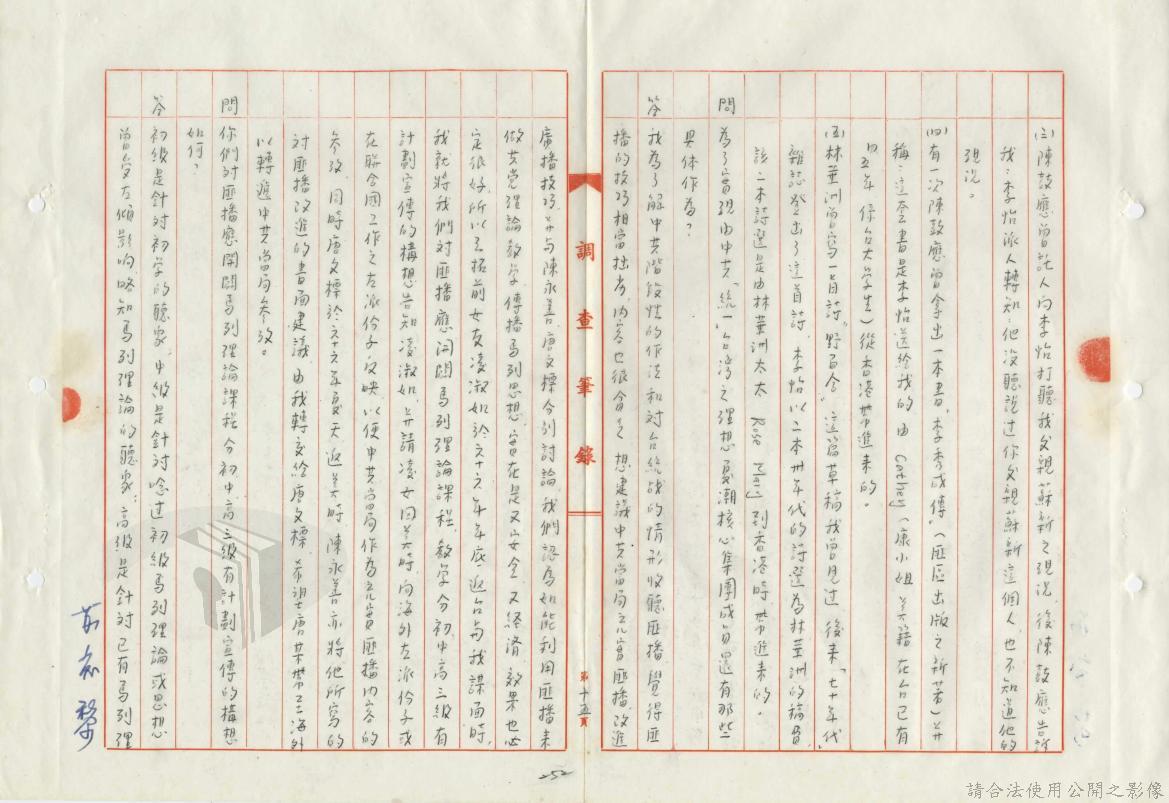 ㈢陳鼓應曾託人向李怡打聽我父親蘇新之現況。後陳鼓應告訴
我:李怡派人轉知,他沒聽說过你父親蘇新這個人,也不知道他的
現況。
㈣有一次陳鼓應曾拿出一本書,「李秀成傳」(匪區出版之新書)并
稱:這套書是李怡送給我的 由(康小姐 美籍 在台已有
四五年 係台大学生)從香港带進来的。
㈤林華洲曾寫一首詩,「野百合」這篇草稿我曾見过 後来「七十年代」
雜誌登出了這首詩,李怡以二本卅年代的詩選為林華洲的稿費,
該二本詩選是由林華洲太太 到香港時带進来的。
問 為了實現由中共「統一」台湾之理想夏潮核心集團成員還有那些
具体作為?
答 我為了解中共階段性的作法和对台統战的情形收聽匪播,覺得匪
播的技巧相當拙劣,内容也很貧乏 想建議中共當局充實匪播,改進
調查筆錄
第十五頁
廣播技巧,并与陳永善、唐文標分别討論,我們認為如能利用匪播来
做共党理論教学 傳播馬列思想 實在是又安全 又経済 效果也必
定很好,所以我前女友凌淑如於六十六年年底返台与我謀面時,
我就將我們对匪播應開闢馬列理論課程,教学分初中高三級有
計劃宣傳的構想告知凌淑如,并請凌女回美時向海外左派份子或
在聯合國工作之左派份子反映,以便中共當局作為充實匪播内容的
參攷,同時唐文標於六十六年夏天返美時,陳永善亦將他所寫的
对匪播改進的書面建議,由我轉交给唐文標,希望唐某带至海外
以轉進中共當局參攷。
問 你們对匪播應開闢馬列理論課程分初中高三級有計劃宣傳的構想
如何?
答 初級是針对初学的聽衆,中級是針对唸过初級馬列理論或思想
曾受左傾影响,略知馬列理論的聽衆;高級是針对已有馬列理
蘇慶黎
252
請合法使用公開之影像